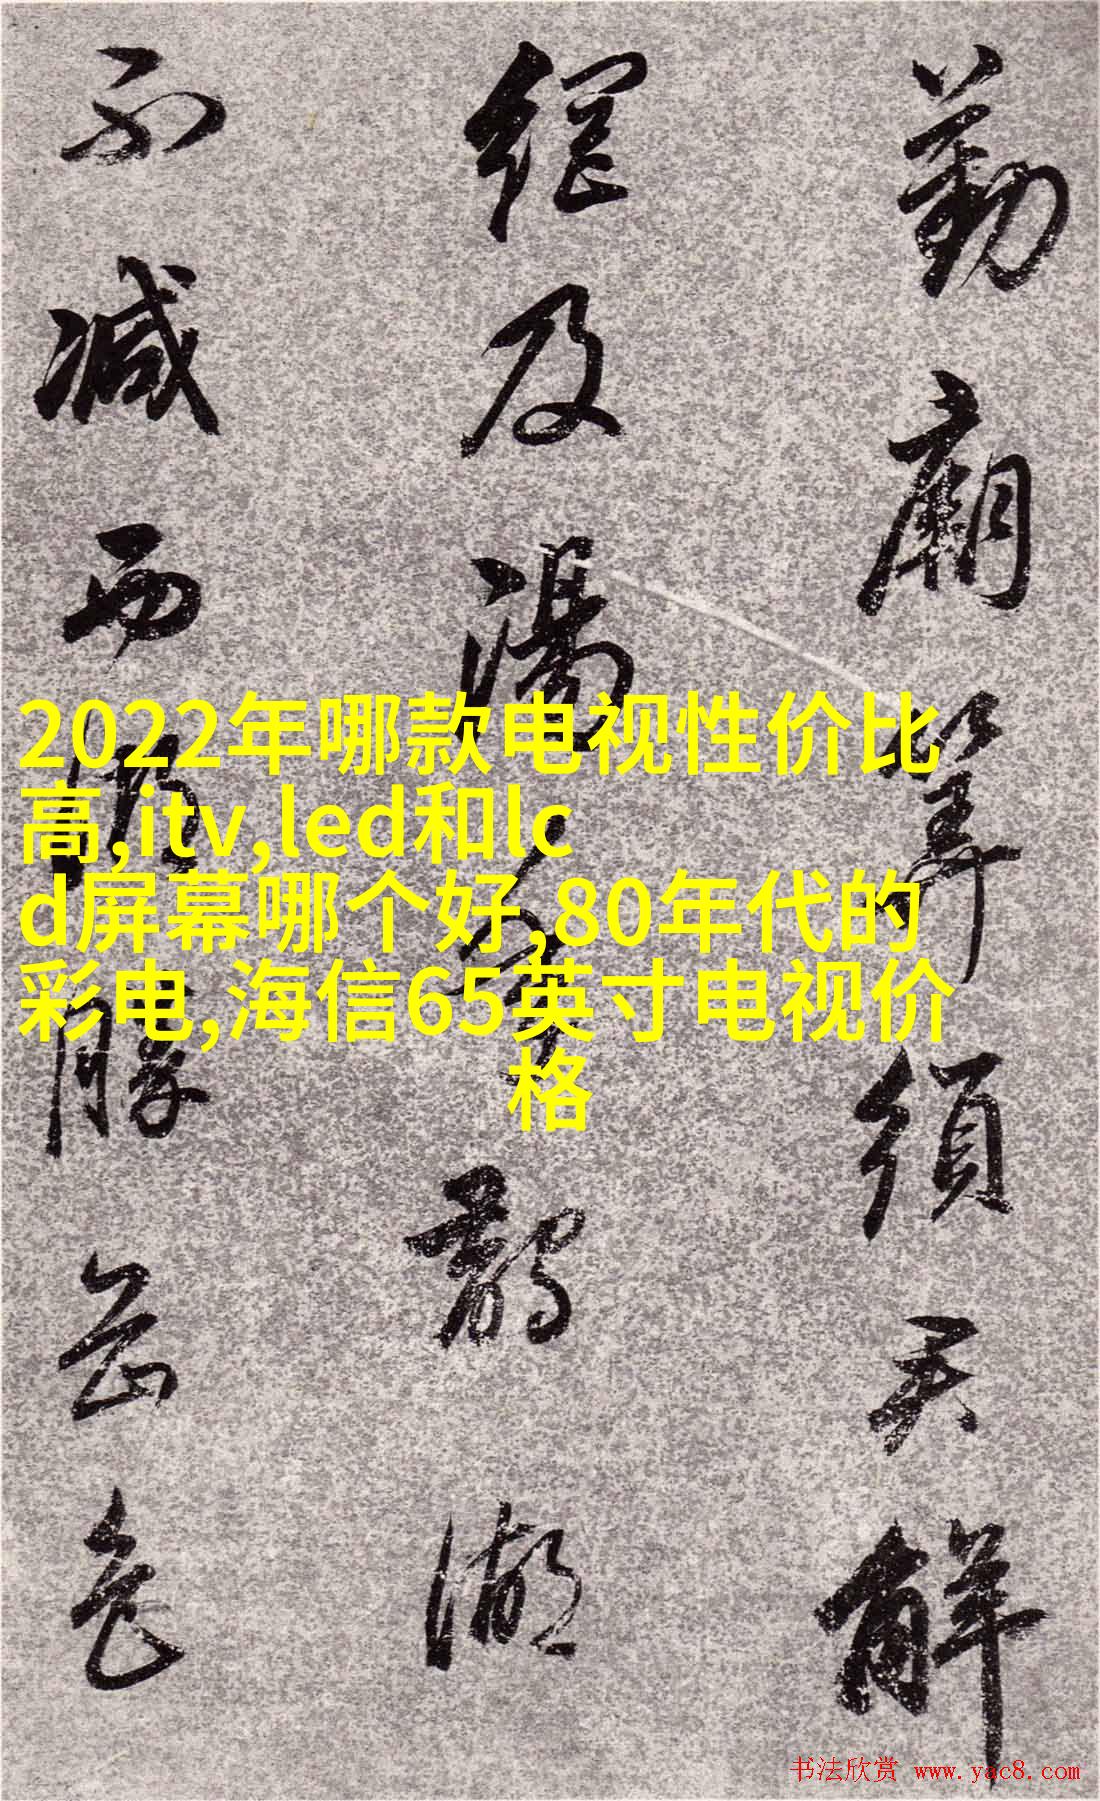 勤廟筭須君解
及湯
湖
不減西
勝
2022年哪款电视性价比
高,itv,led和lc
d屏幕哪个好,80年代的
彩电,海信65英寸电视价
格
书法欣赏 www.yac8.com